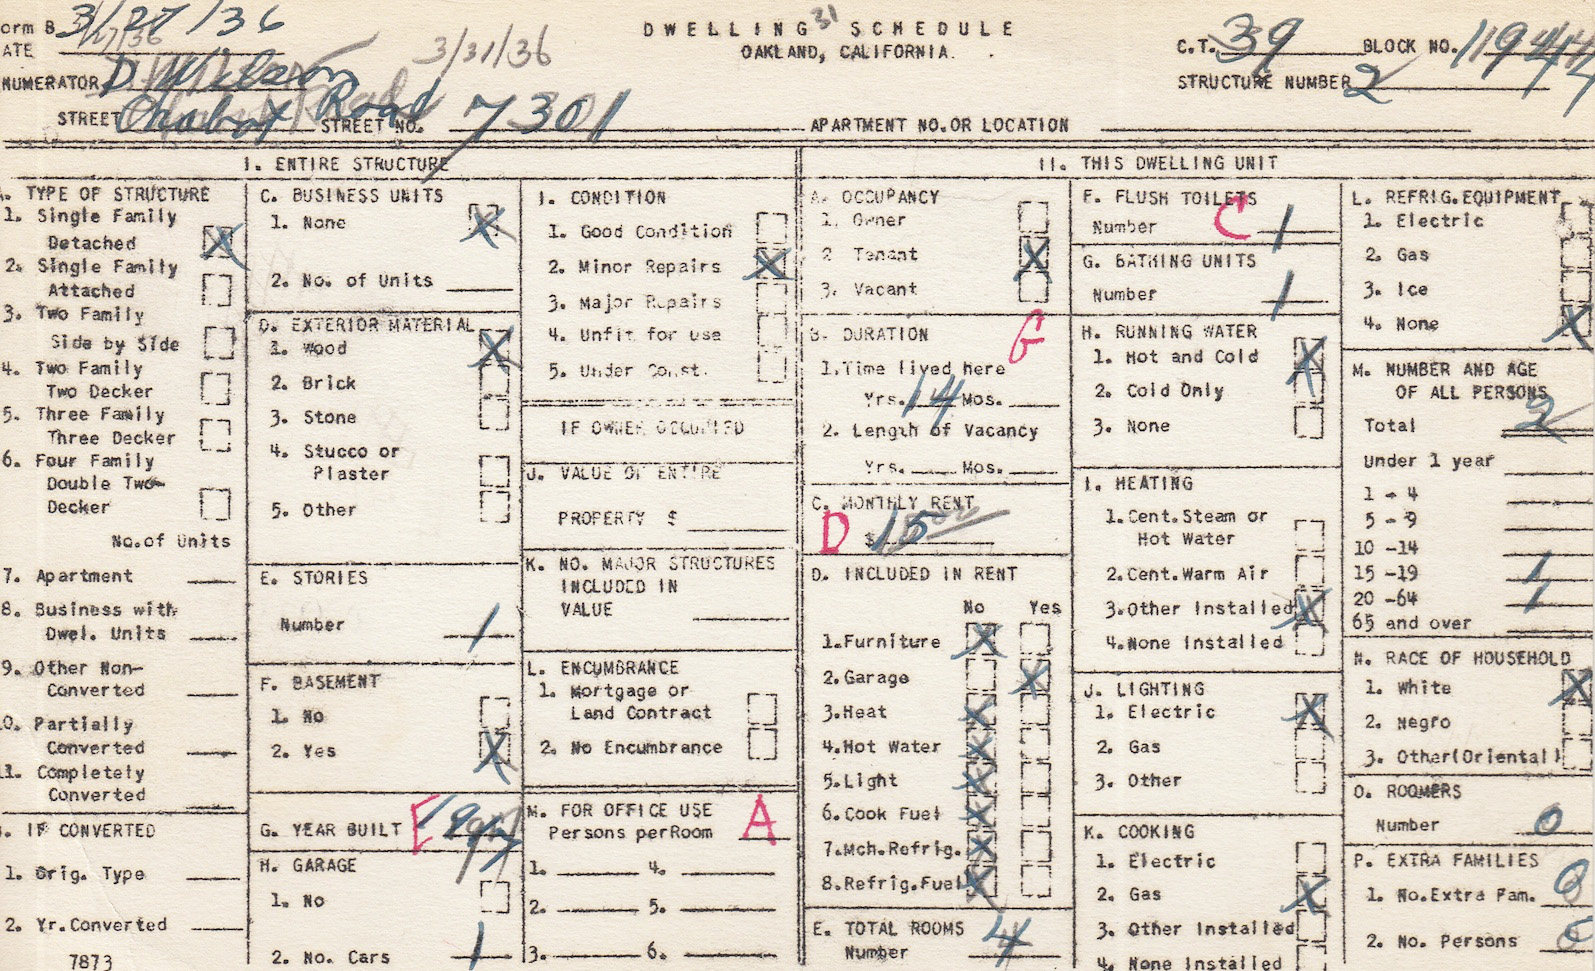 DWELLING SCHEDULE
OAKLAND, CALIFORNIA.
orm B 3/27/36
ATE 3/31/36
31
NUMERATOR D Wilson
STREET Chabot Road STREET NO. 7301
C.T. 39 BLOCK NO. 11944
STRUCTURE NUMBER 2
APARTMENT NO.OR LOCATION
I. ENTIRE STRUCTURE
. TYPE OF STRUCTURE
1. Single Family
Detached X
2. Single Family
Attached
3. Two Family
Side by Side
4. Two Family
Two Decker
5. Three Family
Three Decker
6. Four Family
Double Two-
Decker
No.of Units
7. Apartment
8. Business with
Dwel. Units
9. Other Non-
Converted
10. Partially
Converted
11. Completely
Converted
. IF CONVERTED
1. Orig. Type
2. Yr.Converted
7873
C. BUSINESS UNITS
1. None X
2. No. of Units
D. EXTERIOR MATERIAL
1. Wood X
2. Brick
3. Stone
4. Stucco or
Plaster
5. Other
E. STORIES
Number 1
F. BASEMENT
1. No
2. Yes X
G. YEAR BUILT E
H. GARAGE
1. No
2. No. Cars 1
I. CONDITION
1. Good Condition
2. Minor Repairs X
3. Major Repairs
4. Unfit for use
5. Under Const.
IF OWNER OCCUPIED
J. VALUE OF ENTIRE
PROPERTY $
K. NO. MAJOR STRUCTURES
INCLUDED IN
VALUE
L. ENCUMBRANCE
1. Mortgage or
Land Contract
2. No Encumbrance
M. FOR OFFICE USE
Persons perRoom A
1. 4.
2. 5.
3. 6.
II. THIS DWELLING UNIT
A. OCCUPANCY
1. Owner
2 Tenant X
3. Vacant
B. DURATION G
1.Time lived here
Yrs. 14 Mos.
2. Length of Vacancy
Yrs. Mos.
C. MONTHLY RENT
D $ 15.00
D. INCLUDED IN RENT
No Yes
1.Furniture X
2.Garage X
3.Heat X
4.Hot Water X
5.Light X
6.Cook Fuel X
7.Mch.Refrig. X
8.Refrig.Fuel X
E. TOTAL ROOMS
Number 4
F. FLUSH TOILETS
Number C 1
G. BATHING UNITS
Number 1
H. RUNNING WATER
1. Hot and Cold X
2. Cold Only
3. None
I. HEATING
1.Cent.Steam or
Hot Water
2.Cent.Warm Air
3.Other Installed X
4.None Installed
J. LIGHTING
1. Electric X
2. Gas
3. Other
K. COOKING
1. Electric
2. Gas X
3. Other Installed
4. None Installed
L. REFRIG.EQUIPMENT
1. Electric
2. Gas
3. Ice
4. None X
M. NUMBER AND AGE
OF ALL PERSONS
Total 2
Under 1 year
1 - 4
5 - 9
10 -14
15 -19 1
20 -64 1
65 and over
N. RACE OF HOUSEHOLD
1. White X
2. Negro
3. Other(Oriental)
O. ROOMERS
Number 0
P. EXTRA FAMILIES
1. No.Extra Fam. 0
2. No. Persons 0